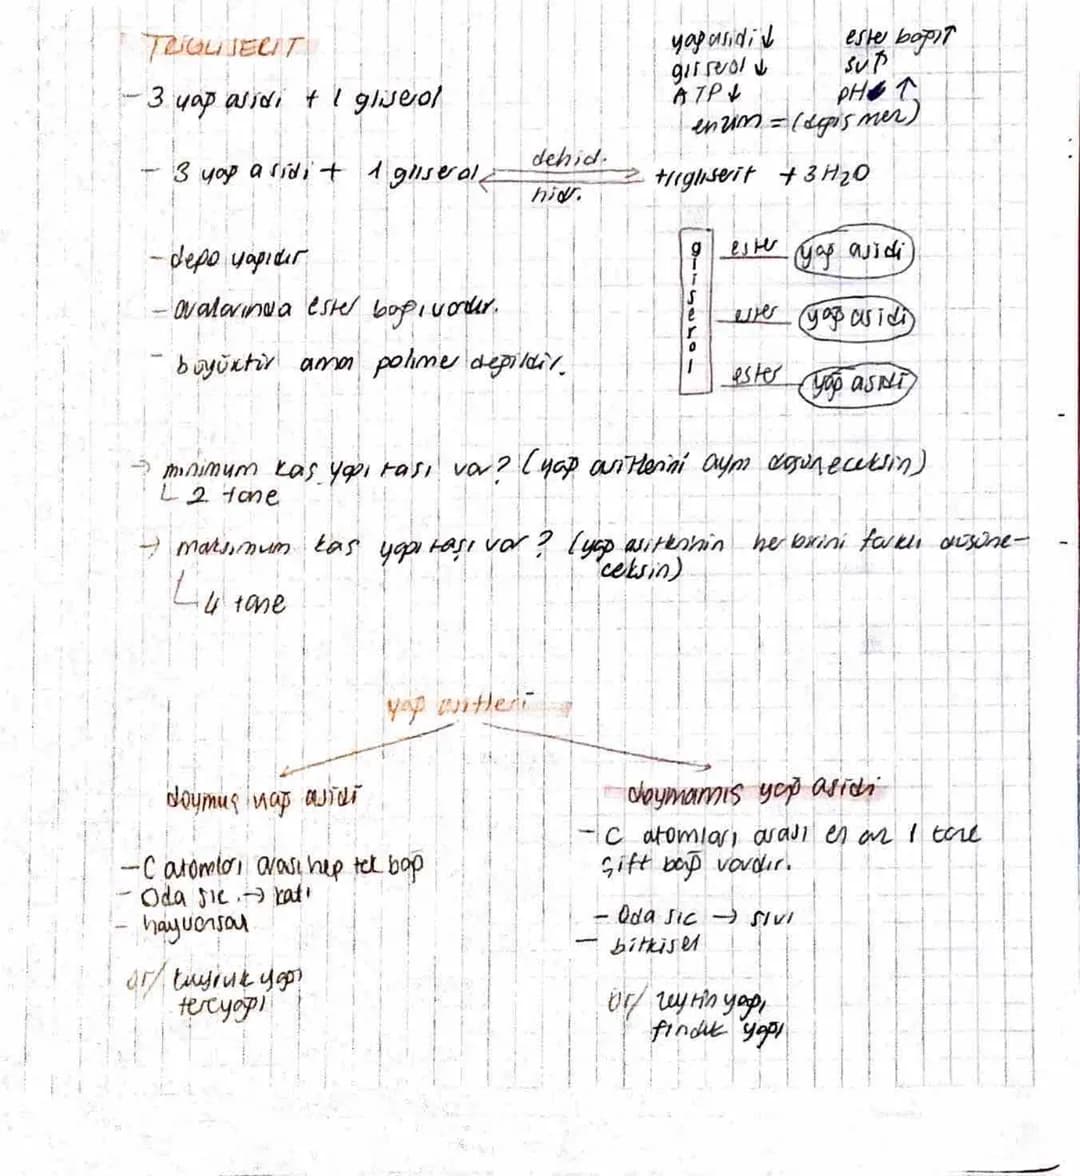 TRİGLİSERİT
- 3 yağ asidi + 1 gliserol
yağ asidi ↓ ester bağı ↑
gliserol ↓ su ↑
ATP ↓ pH ↑
enzim = (değişmez)
- 3 yağ asidi + 1 gliserol dehid. hid. trigliserit + 3H₂O
- depo yapıdır
- aralarında ester bağı vardır.
- büyüktür ama polimer değildir.
gliserol
ester yağ asidi
ester yağ asidi
ester yağ asidi
→ minimum kaç yapı taşı var? (yağ asitlerini aynı düşüneceksin)
↳ 2 tane
→ maksimum kaç yapı taşı var? (yağ asitlerinin herbirini farklı düşüne-
ceksin)
↳ 4 tane
yağ asitleri
doymuş yağ asidi
- C atomları arası hep tek bağ
- Oda sıc. → katı
- hayvansal
ör/ kuyruk yağı
tereyağı
doymamış yağ asidi
- C atomları arası en az 1 tane
çift bağ vardır.
- Oda sıc → sıvı
- bitkisel
ör/ zeytin yağı,
fındık yağı